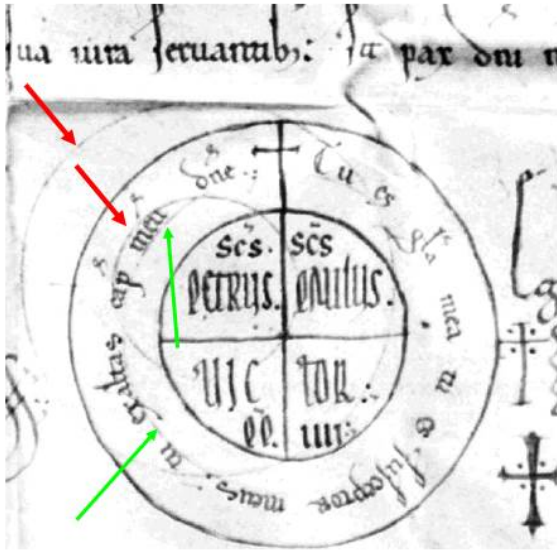 ua iura ſeruantib;: Sit pax dni
Tu es gl̃a mea tu es ſuſceptor meus; tu exaltas cap meũ dñe.:
sc̄s. sc̄s
PETRUS. PAULUS.
UIC TOR.:
P̄P̄. IIII: